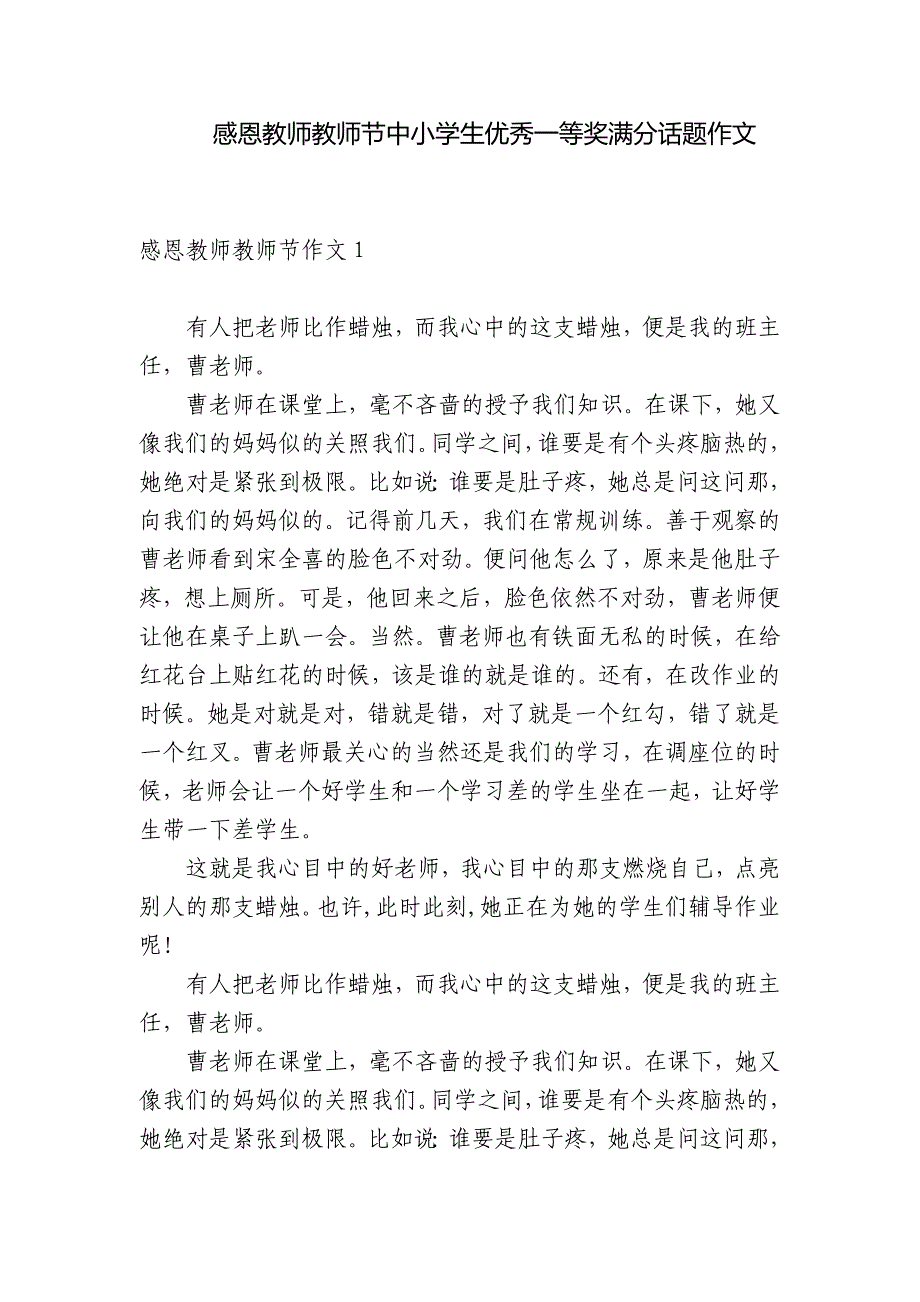 感恩教师教师节中小学生优秀一等奖满分话题作文
感恩教师教师节作文1
有人把老师比作蜡烛，而我心中的这支蜡烛，便是我的班主
任，曹老师。
曹老师在课堂上，毫不吝啬的授予我们知识。在课下，她又
像我们的妈妈似的关照我们。同学之间，谁要是有个头疼脑热的，
她绝对是紧张到极限。比如说：谁要是肚子疼，她总是问这问那，
向我们的妈妈似的。记得前几天，我们在常规训练。善于观察的
曹老师看到宋全喜的脸色不对劲。便问他怎么了，原来是他肚子
疼，想上厕所。可是，他回来之后，脸色依然不对劲，曹老师便
让他在桌子上趴一会。当然。曹老师也有铁面无私的时候，在给
红花台上贴红花的时候，该是谁的就是谁的。还有，在改作业的
时候。她是对就是对，错就是错，对了就是一个红勾，错了就是
一个红叉。曹老师最关心的当然还是我们的学习，在调座位的时
候，老师会让一个好学生和一个学习差的学生坐在一起，让好学
生带一下差学生。
这就是我心目中的好老师，我心目中的那支燃烧自己，点亮
别人的那支蜡烛。也许，此时此刻，她正在为她的学生们辅导作业
呢！
有人把老师比作蜡烛，而我心中的这支蜡烛，便是我的班主
任，曹老师。
曹老师在课堂上，毫不吝啬的授予我们知识。在课下，她又
像我们的妈妈似的关照我们。同学之间，谁要是有个头疼脑热的，
她绝对是紧张到极限。比如说：谁要是肚子疼，她总是问这问那，